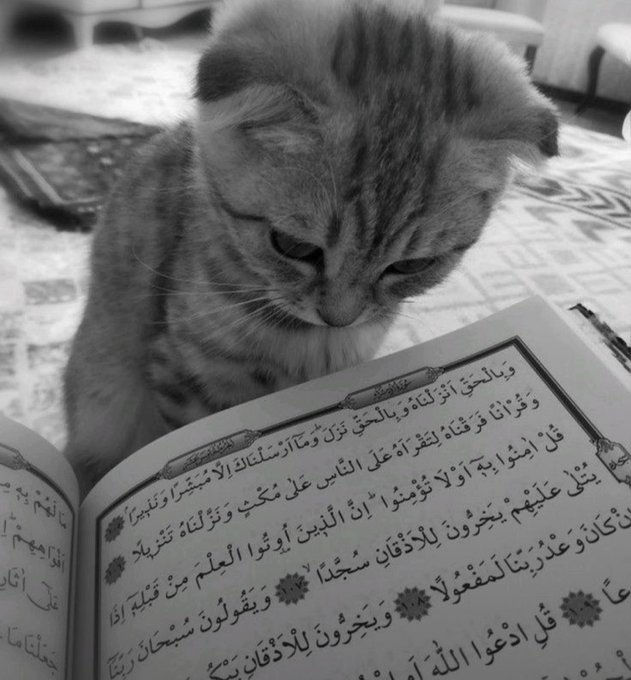 وَبِالْحَقِّ اَنْزَلْنَاهُ وَبِالْحَقِّ نَزَلَ وَمَٓا اَرْسَلْنَاكَ اِلَّا مُبَشِّرًا وَنَذِيرًا
وَقُرْاٰنًا فَرَقْنَاهُ لِتَقْرَاَهُ عَلَى النَّاسِ عَلٰى مُكْثٍ وَنَزَّلْنَاهُ تَنْزِيلًا
قُلْ اٰمِنُوا بِهِٓ اَوْ لَا تُؤْمِنُوا اِنَّ الَّذِينَ اُوتُوا الْعِلْمَ مِنْ قَبْلِهِٓ اِذَا
يُتْلٰى عَلَيْهِمْ يَخِرُّونَ لِلْاَذْقَانِ سُجَّدًا ١٠٧ وَيَقُولُونَ سُبْحَانَ رَبِّنَٓا
اِنْ كَانَ وَعْدُ رَبِّنَا لَمَفْعُولًا ١٠٨ وَيَخِرُّونَ لِلْاَذْقَانِ
عًا ١٠٩ قُلِ ادْعُوا اللّٰهَ اَوِ
مَا لَهُمْ بِهِ
اَفْوَاهِهِمْ
عَلٰٓى
جَعَلْنَا مَا